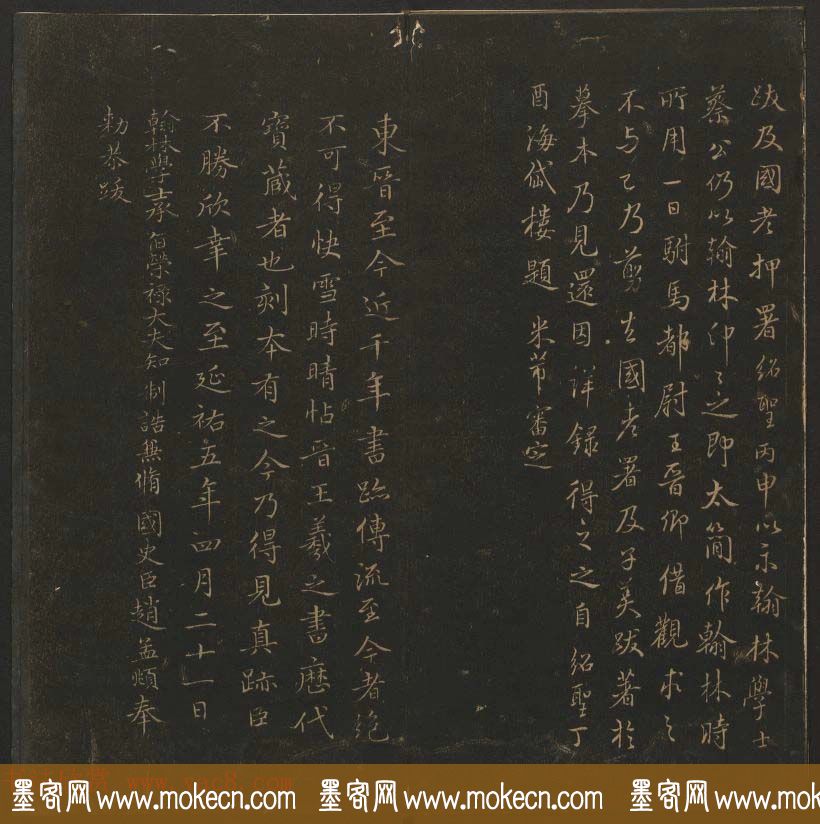 跋及國老押署紹聖丙申以示翰林學士
蔡公仍以翰林印印之即太簡作翰林時
所用一日駙馬都尉王晉卿借觀求之
不与已乃剪去國老署及子美跋著於
摹本乃見還因詳錄得之之自紹聖丁
酉海岱樓題 米芾審定
東晉至今近千年書跡傳流至今者絕
不可得快雪時晴帖晉王羲之書歷代
寶藏者也刻本有之今乃得見真跡臣
不勝欣幸之至延祐五年四月二十一日
翰林學士承旨榮祿大夫知制誥兼脩國史臣趙孟頫奉
勅恭跋
墨客网 www.mokecn.com 墨客网 www.mokecn.com 墨客网 www.mokecn.com